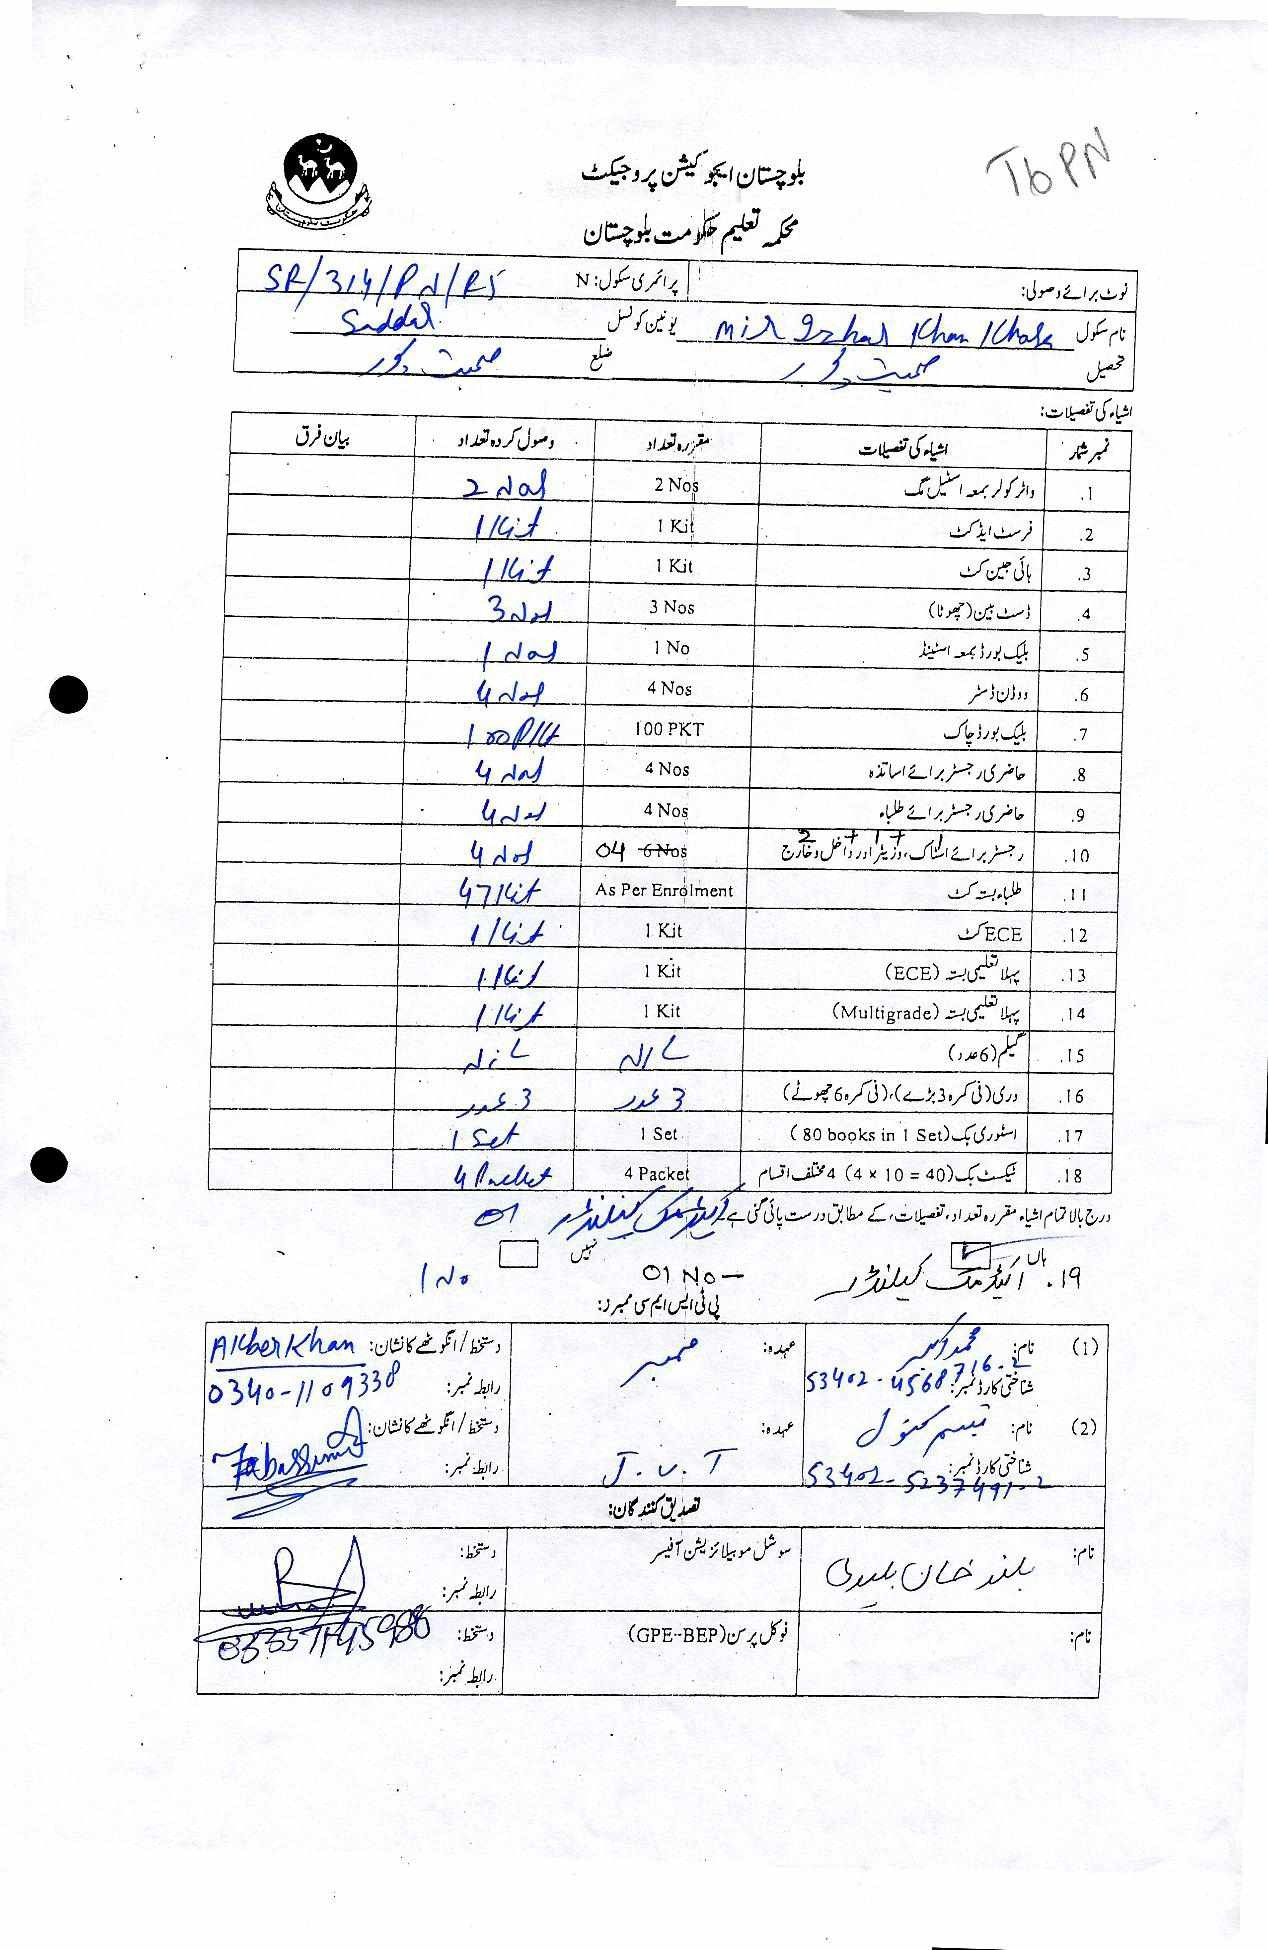 T6 PN
بلوچستان ایجوکیشن پروجیکٹ
محکمہ تعلیم حکومت بلوچستان
نوٹ برائے وصولی: پرائمری سکول: N SR/314/PN/RS
نام سکول Mir Izhar Khan Khosa یونین کونسل Saddar
تحصیل صحبت پور ضلع صحبت پور
اشیاء کی تفصیلات:
نمبر شمار اشیاء کی تفصیلات مقررہ تعداد وصول کردہ تعداد بیان فرق
.1 واٹر کولر بمعہ اسٹیل مگ 2 Nos 2 Nos
.2 فرسٹ ایڈ کٹ 1 Kit 1 Kit
.3 ہائی جین کٹ 1 Kit 1 Kit
.4 ڈسٹ بین (چھوٹا) 3 Nos 3 Nos
.5 بلیک بورڈ بمعہ اسٹینڈ 1 No 1 Nos
.6 ووڈن ڈسٹر 4 Nos 4 Nos
.7 بلیک بورڈ چاک 100 PKT 100 Pkt
.8 حاضری رجسٹر برائے اساتذہ 4 Nos 4 Nos
.9 حاضری رجسٹر برائے طلباء 4 Nos 4 Nos
.10 رجسٹر برائے اسٹاک، وزیٹر اور داخل و خارج 2 + 1 + 1 04 6 Nos 4 Nos
.11 طلباء بستہ کٹ As Per Enrolment 47 Kit
.12 ECE کٹ 1 Kit 1 Kit
.13 پہلا تعلیمی بستہ (ECE) 1 Kit 1 Kit
.14 پہلا تعلیمی بستہ (Multigrade) 1 Kit 1 Kit
.15 گیلم (6 عدد) NIL NIL
.16 دری (فی کمرہ 3 بڑے)، (فی کمرہ 6 چھوٹے) 3 عدد 3 عدد
.17 اسٹوری بک (80 books in 1 Set) 1 Set 1 Set
.18 ٹیکسٹ بک (4 x 10 = 40) 4 مختلف اقسام 4 Packet 4 Packet
درج بالا تمام اشیاء مقررہ تعداد، تفصیلات، کے مطابق درست پائی گئی ہے۔ کیلنڈر 01
ہاں نہیں
۱۹. اکیڈمک کیلنڈر 01 No - 1 No
پی ٹی ایس ایم سی ممبرز:
(1) نام: محمد اکبر عہدہ: ممبر دستخط / انگوٹھے کا نشان: Akber Khan
شناختی کارڈ نمبر: 53402-4568716-2 رابطہ نمبر: 0340-1109338
(2) نام: تبسم کنول عہدہ: J.V.T دستخط / انگوٹھے کا نشان: Tabassum
شناختی کارڈ نمبر: 53402-5237491-2 رابطہ نمبر:
تصدیق کنندگان:
نام: بلند خان بلیدی سوشل موبیلائزیشن آفیسر دستخط:
رابطہ نمبر:
نام: فوکل پرسن (GPE-BEP) دستخط:
رابطہ نمبر: